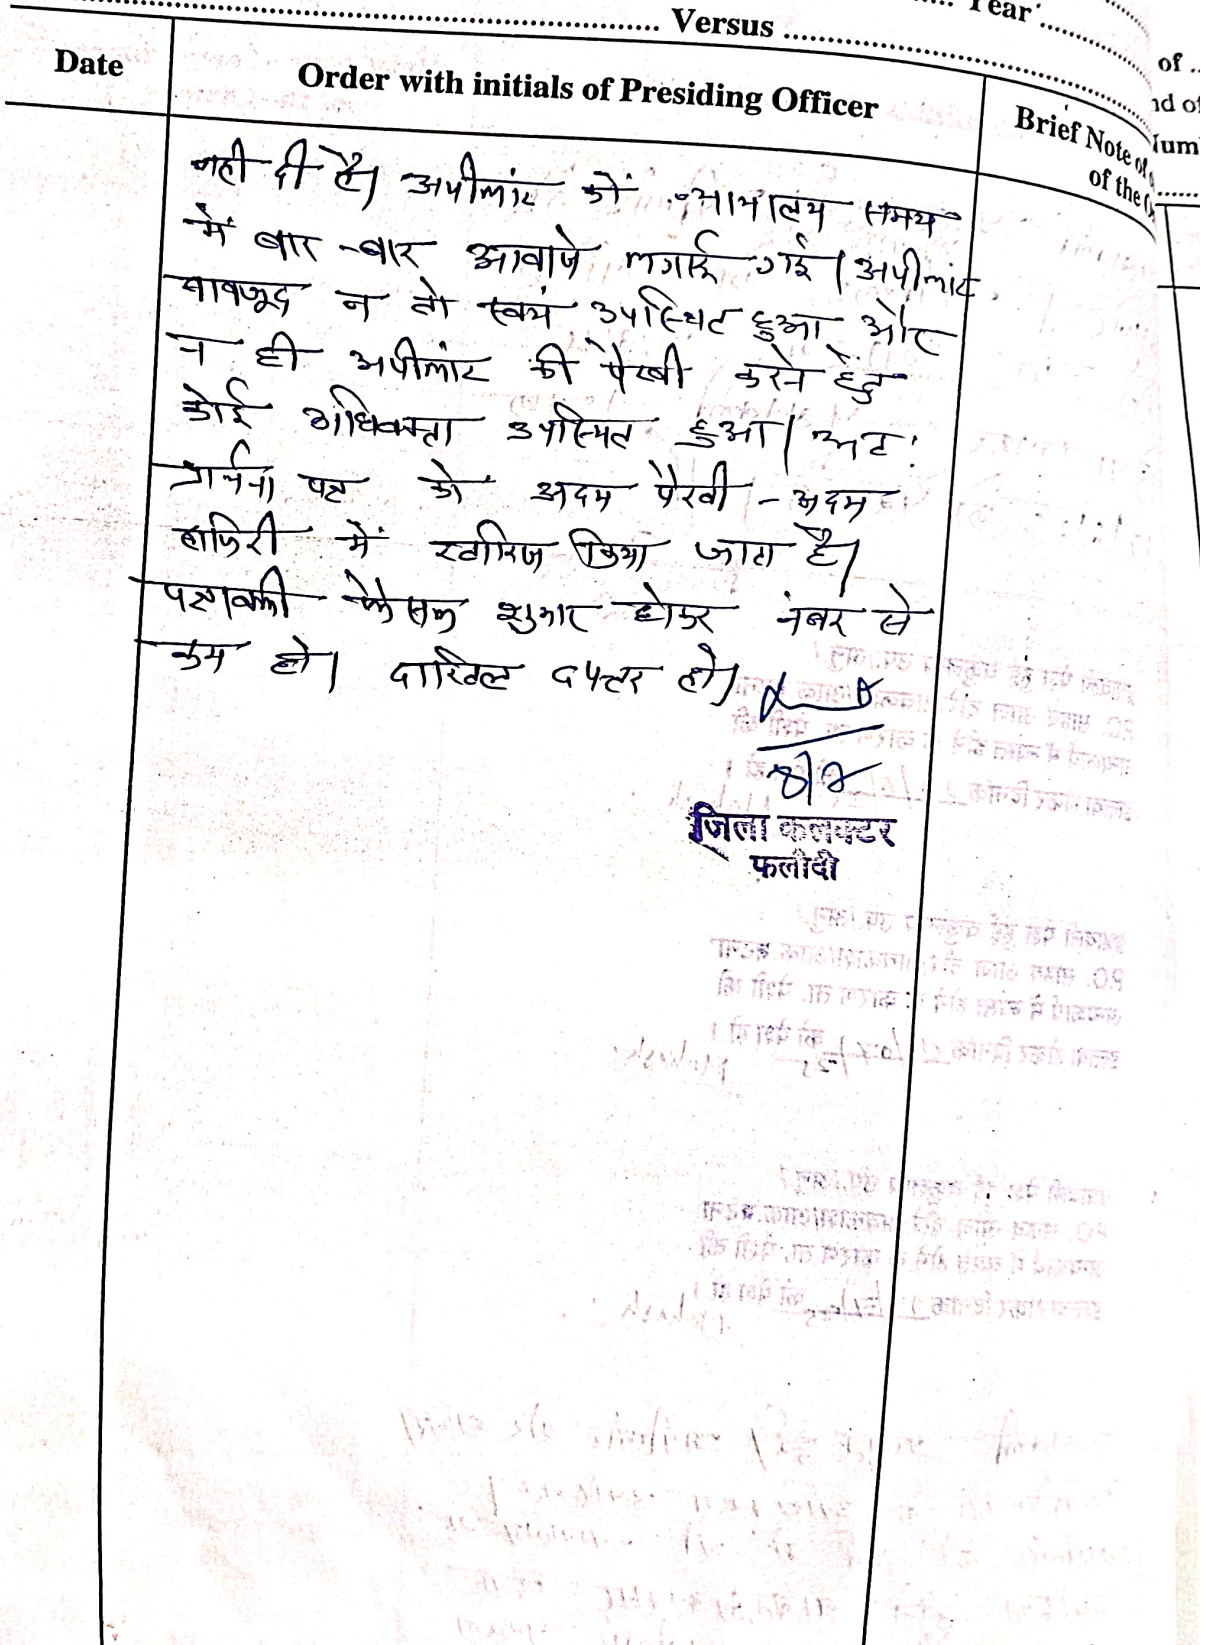 Year
Versus
of
nd of
Num
Date
Order with initials of Presiding Officer
Brief Note of
of the
नही दी है। अपीलांट को न्यायालय समय
में बार-बार आवाजे लगाई गई। अपीलांट
बावजूद न तो स्वयं उपस्थित हुआ और
न ही अपीलांट की पैरवी करने हेतु
कोई अधिवक्ता उपस्थित हुआ। अतः
प्रार्थना पत्र को अदम पैरवी - अदम
हाजिरी में खारिज किया जाता है।
पत्रावली फैसल शुमार होकर नंबर से
कम हो। दाखिल दफ्तर हो।
जिला कलक्टर
फलौदी